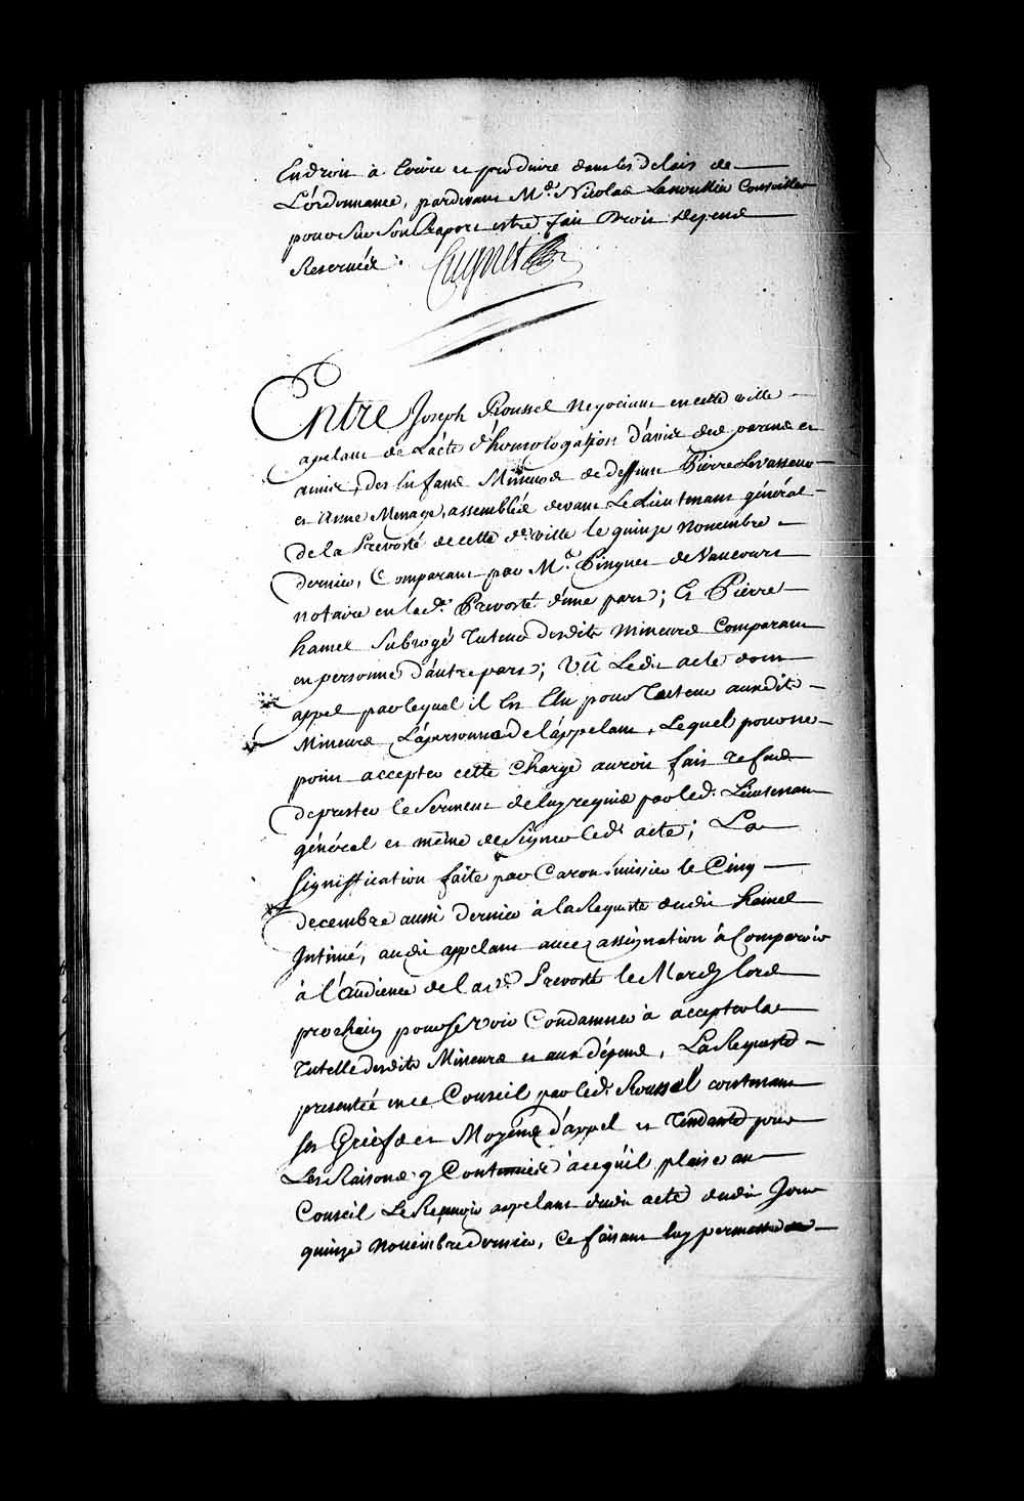 En droit à Ecrire et produire dans les delais de
L'ordonnance, pardevant Me. Nicolas Lanoullier Conseiller
pour sur son Raport estre fait Droit depens
Reservés. Cugnet
Entre Joseph Roussel negociant en cette ville
apelant de L'acte d'homologation d'avis des parens et
amis, des Enfans Mineurs de deffunt Pierre Levasseur
et Anne Menage, assemblés devant Le Lieutenant général
de la Prevosté de cette de. ville le quinze novembre
dernier, Comparant par Me. Pinguet de Vaucours
notaire en lade. Prevosté d'une part; Et Pierre
hamel Subrogé Tuteur desdits mineurs Comparant
en personne d'autre part; Vû Ledit acte dont
appel par lequel il Est Elu pour Tuteur auxdits
Mineurs La personne de l'appelant, Lequel pour ne
point accepter cette Charge auroit fait refus
de prester le Serment de luy requis par led. Lieutenant
général et même de Signer led. acte; La
Signiffication faite par Caron huissier le Cinq
decembre aussi dernier à la Requeste dudit hamel
Intimé, audit appelant avec assignation à Comparoir
à l'audience de lade. Prevosté le Mardy lors
prochain pour se voir Condamner à accepter la
Tutelle desdits Mineurs et aux dépens, La Requeste
presentée en ce Conseil par led. Roussel contenant
ses Griefs et Moyens d'appel et Tendante pour
Les Raisons y Contenües à ce qu'il plaise au
Conseil Le Recevoir appelant dudit acte dudit Jour
quinze novembre dernier, Ce faisant luy permettre